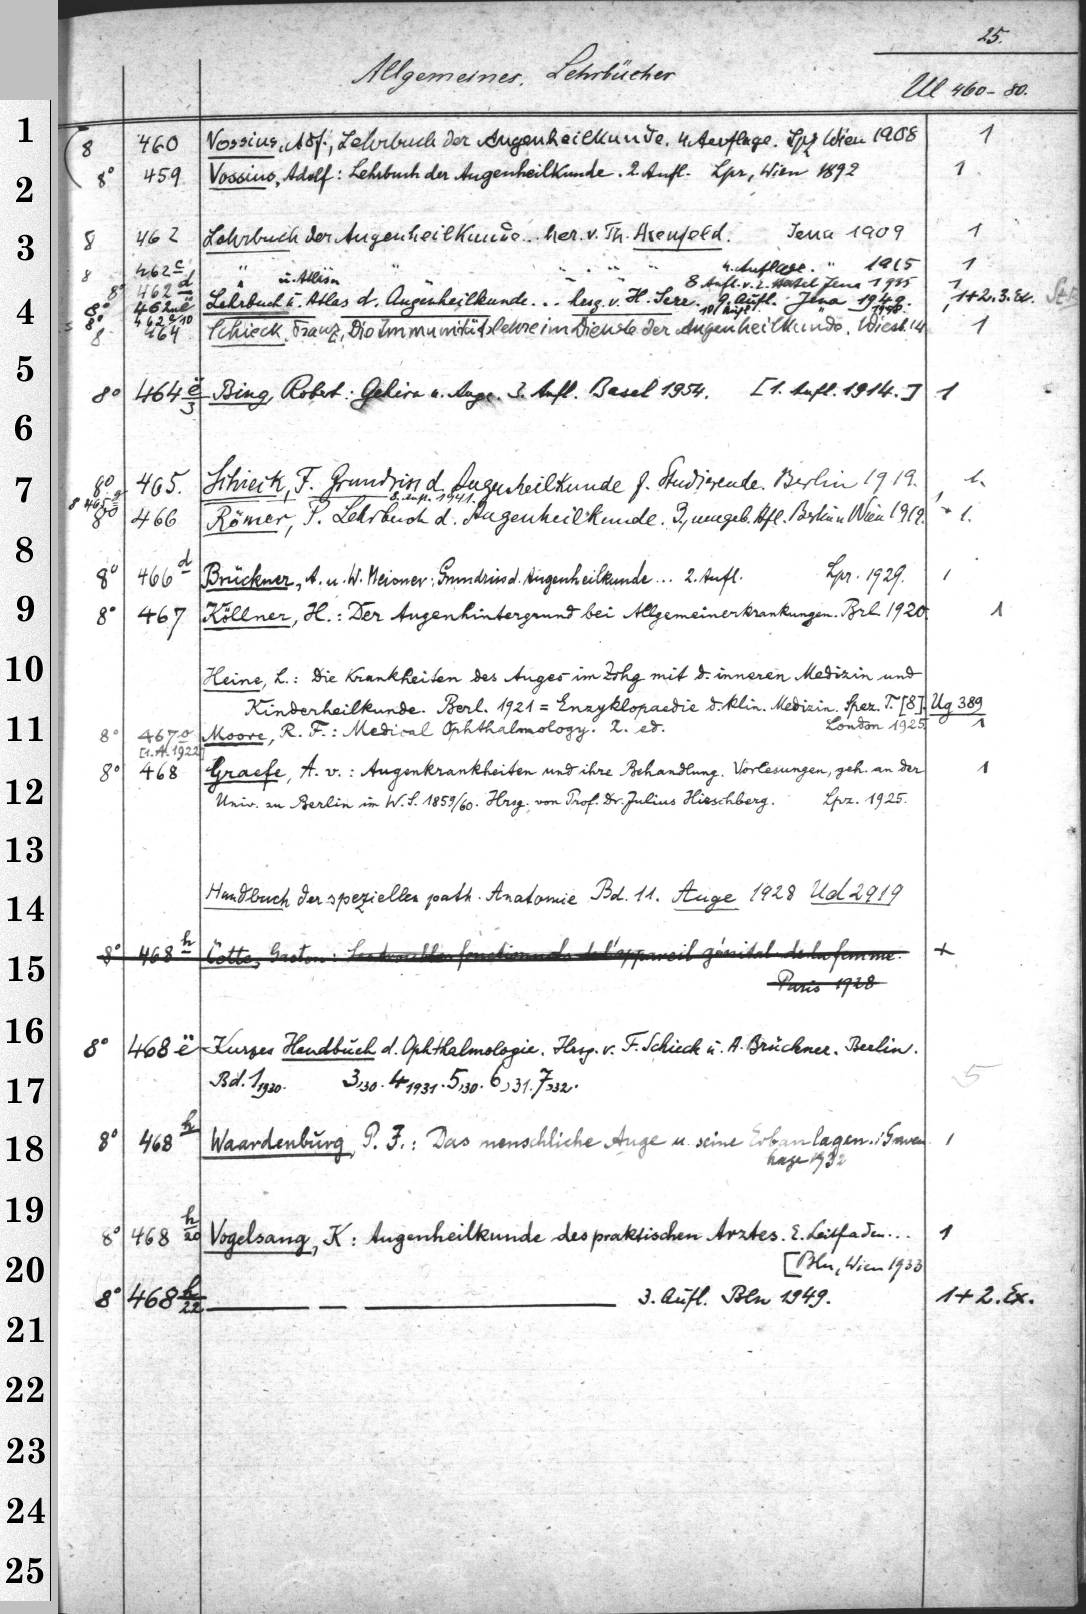 25.
Allgemeines. Lehrbücher
Ul 460-80.
1 8 460 Vossius, Adf., Lehrbuch der Augenheilkunde. 4. Auflage. Lpz Wien 1908 1
2 8° 459 Vossius, Adolf: Lehrbuch der Augenheilkunde. 2. Aufl. Lpz, Wien 1892 1
3 8 462 Lehrbuch der Augenheilkunde.. her. v. Th. Axenfeld. Jena 1909 1
8 462c " " " " " " 4. Auflage. " 1915 1
8° 462d u. Atlas 8. Aufl. v. Jena 1935 1
4 8° Lehrbuch u. Atlas d. Augenheilkunde... hrsg. v. H. Serr. 9. Aufl. Jena 1949. 1+2.3.Ex.
8° 10. Aufl. "
8 464 Schieck, Franz, Die Immunitätslehre im Dienste der Augenheilkunde. Wiesb. 14 1
5 8° 464 ë/3 Bing, Robert: Gehirn u. Auge. 3. Aufl. Basel 1954. [1. Aufl. 1914.] 1
6
7 8° 465. Schieck, F. Grundriss d. Augenheilkunde f. Studierende. Berlin 1919. 1.
8 465 8. Aufl. 1941.
8° 466 Römer, P. Lehrbuch d. Augenheilkunde. 3., umgeb. Afl. Berlin u Wien 1919. 1.
8 8° 466d Brückner, A. u. W. Meisner: Grundriss d. Augenheilkunde... 2. Aufl. Lpz. 1929. 1
9 8° 467 Köllner, H.: Der Augenhintergrund bei Allgemeinerkrankungen. Brl. 1920. 1
10 Heine, L.: Die Krankheiten des Auges im Zshg mit d. inneren Medizin und
Kinderheilkunde. Berl. 1921 = Enzyklopaedie d. klin. Medizin. Spez. T. [8]. Ug 389
11 8° 467 Moore, R. F.: Medical Ophthalmology. 2. ed. London 1925 1
[1.A. 1922]
8° 468 Graefe, A. v.: Augenkrankheiten und ihre Behandlung. Vorlesungen, geh. an der 1
12 Univ. zu Berlin im W.S. 1859/60. Hrsg. von Prof. Dr. Julius Hirschberg. Lpz. 1925.
13
14 Handbuch der speziellen path. Anatomie Bd. 11. Auge 1928 Ud 2919
15 8° 468h Cotte, Gaston: Les troubles fonctionnels de l'appareil génital de la femme. +
Paris 1928
16 8° 468ë Kurzes Handbuch d. Ophthalmologie. Hrsg. v. F. Schieck u. A. Brückner. Berlin.
17 Bd. 1,1930. 3,30. 4,1931. 5,30. 6,31. 7,32. 5
18 8° 468h Waardenburg, P. J.: Das menschliche Auge u. seine Erbanlagen. 'sGraven 1
hage 1932
19 8° 468 h/20 Vogelsang, K: Augenheilkunde des praktischen Arztes. E. Leitfaden... 1
20 [Bln, Wien 1933
8° 468 h/22 ——— — ——— 3. Aufl. Bln 1949. 1+2.Ex.
21
22
23
24
25